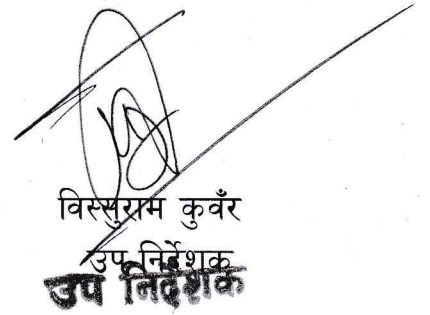 विस्सुराम कुवँर
उप निर्देशक
उप निर्देशक